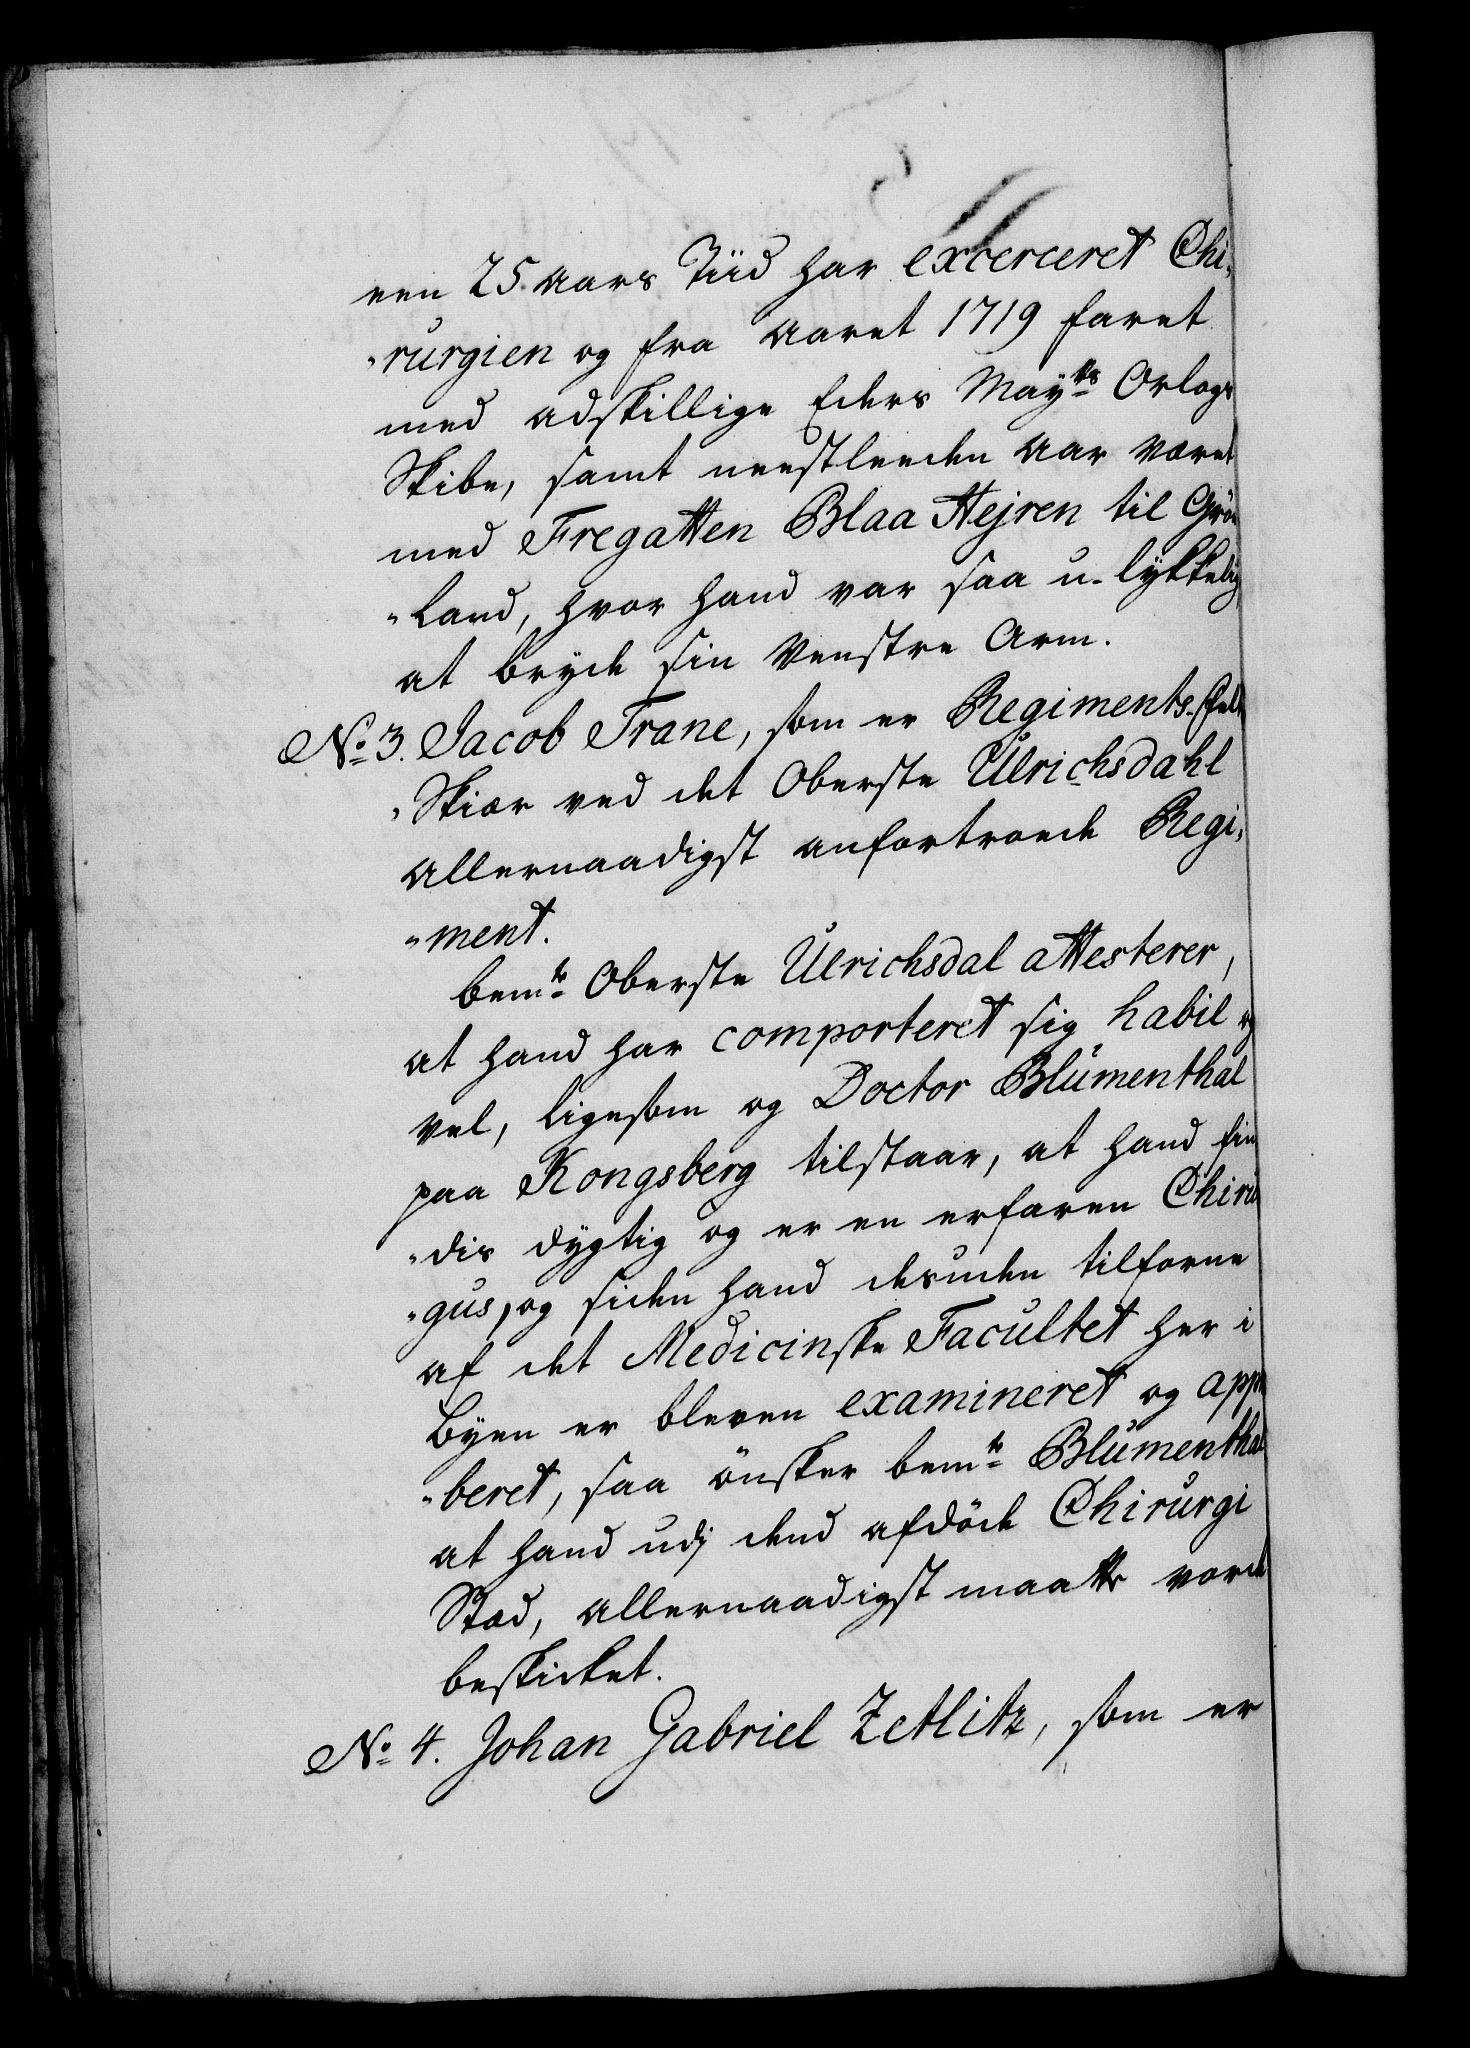 een 25 aars Tiid har excerceret Chi,
"rurgien og fra Aaret 1719 faret
med adskillige Eders Mayts Orlogs
Skibe, samt neestleeden Aar været
med Fregatten Blaa Hejren til Grön
"Land, hvor hand var saa u-lykkelig
at bryde sin Venstre Arm.
No 3. Jacob Trane, som er Regiments-Felt
"Skiær ved det Oberste Ulrichsdahl
Allernaadigst anfortroede Regi,
"ment.
bemte Oberste Ulrichsdal attesterer,
at hand har comporteret sig habil og
vel, ligesom og Doctor Blumenthal
paa Kongsberg tilstaar, at hand fin
"dis dygtig og er en erfaren Chirur
"gus, og siden hand desuden tilforne
af det Medicinske Facultet her i
Byen er bleven examineret og appro
"beret, saa ønsker bemte Blumenthal
at hand udj dend afdöde Chirurgi
Stæd, allernaadigst maatte vorde
beskicket.
No 4. Johan Gabriel Zetlitz, som er